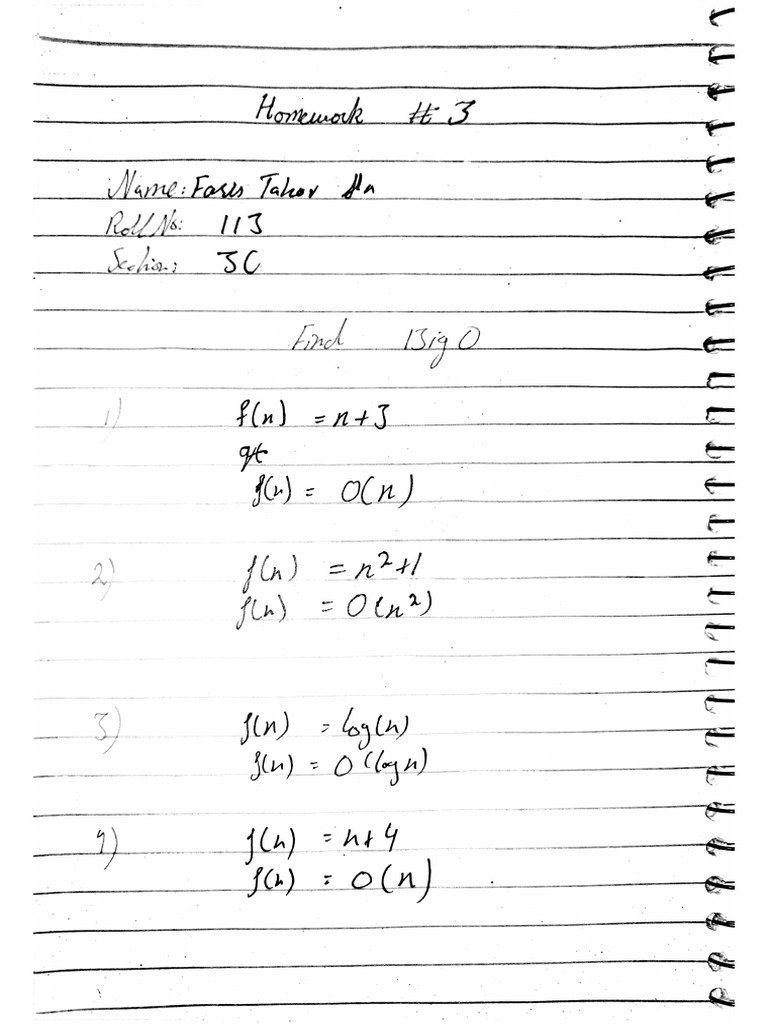 Homework # 3
Name:
Roll No: 113
Section: 3C
Find Big O
1) f(n) = n+3
f(n) = O(n)
2) f(n) = n²+1
f(n) = O(n²)
3) f(n) = log(n)
f(n) = O(log n)
4) f(n) = n+4
f(n) = O(n)